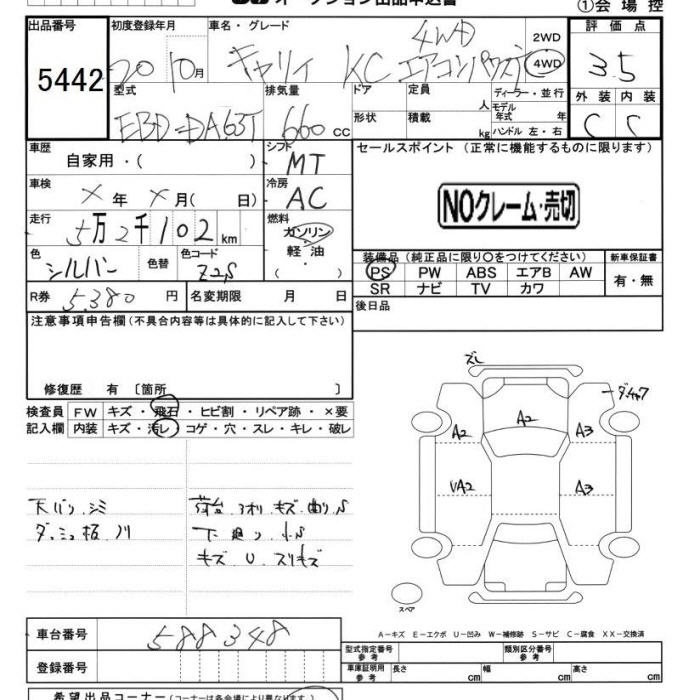 オークション出品申込書
①会場控
出品番号 初度登録年月 車名・グレード 評価点
5442
20 10月
キャリイ KC エアコンパワステ
4WD
2WD
4WD
3.5
型式 排気量 ドア 定員 ディーラー・並行 外装 内装
EBD=DA63T 660 cc
人 モデル年式 年
形状 積載 kg ハンドル 左・右
C C
車歴 シフト セールスポイント (正常に機能するものに限ります)
自家用・( ) MT
車検 冷房
× 年 × 月( 日) AC
NOクレーム・売切
走行 燃料
5万2千102 km ガソリン・
軽油・
( )
色 色替 色コード
シルバー Z2S
装備品(純正品に限り○をつけてください) 新車保証書
PS PW ABS エアB AW 有・無
SR ナビ TV カワ
R券 5.380 円 名変期限 月 日
後日品
注意事項申告欄(不具合内容等は具体的に記入して下さい)
修復歴 有 〔箇所 〕
検査員 FW キズ・飛石・ヒビ割・リペア跡・×要
記入欄 内装 キズ・汚レ・コゲ・穴・スレ・キレ・破レ
天バン シミ
ダッシュ板 ノリ
荷台 アオリ キズ 曲リ.S
下廻り 小S
キズ U スリキズ
ズレ
A2
A2
A3
UA2
A3
スペア
A-キズ E-エクボ U-凹み W-補修跡 S-サビ C-腐食 XX-交換済
車台番号 588348
登録番号
型式指定番号 参考 類別区分番号 参考
車庫証明用 参考 長さ cm 幅 cm 高さ cm
希望出品コーナー(コーナーは各会場により異なります。)